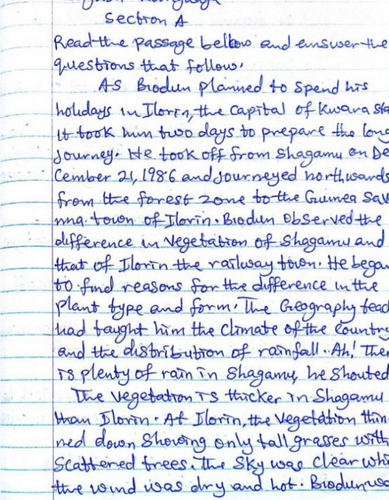 Section A
Read the passage bellow and answer the
questions that follow.
As Biodun planned to spend his
holidays in Ilorin, the capital of Kwara sta
it took him two days to prepare the long
journey. He took off from Shagamu on De
cember 21, 1986 and journeyed northwards
from the forest zone to the Guinea Sav
nna town of Ilorin. Biodun observed the
difference in vegetation of Shagamu and
that of Ilorin the railway town. He began
to find reasons for the difference in the
plant type and form. The Geography teac
had taught him the climate of the country
and the distribution of rainfall. Ah! The
is plenty of rain in Shagamu, he shouted
The vegetation is thicker in Shagamu
than Ilorin. At Ilorin, the vegetation thin
ned down showing only tall grasses with
scattered trees. The sky was clear whi
the wind was dry and hot. Biodun wa